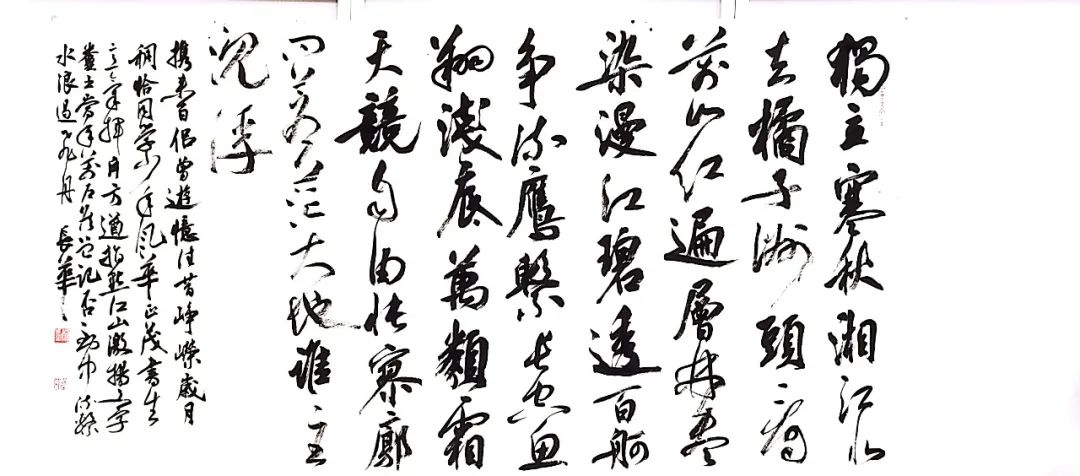 獨立寒秋湘江北
去橘子洲頭看
萬山红遍層林盡
染漫江碧透百舸
争流鷹擊長空魚
翔淺底萬類霜
天競自由悵寥廓
問蒼茫大地誰主
沉浮
携来百侣曾遊憶往昔崢嶸歲月
稠恰同學少年風華正茂書生
意氣揮斥方遒指點江山激揚文字
糞土當年萬户侯曾記否到中流擊
水浪遏飛舟 長華